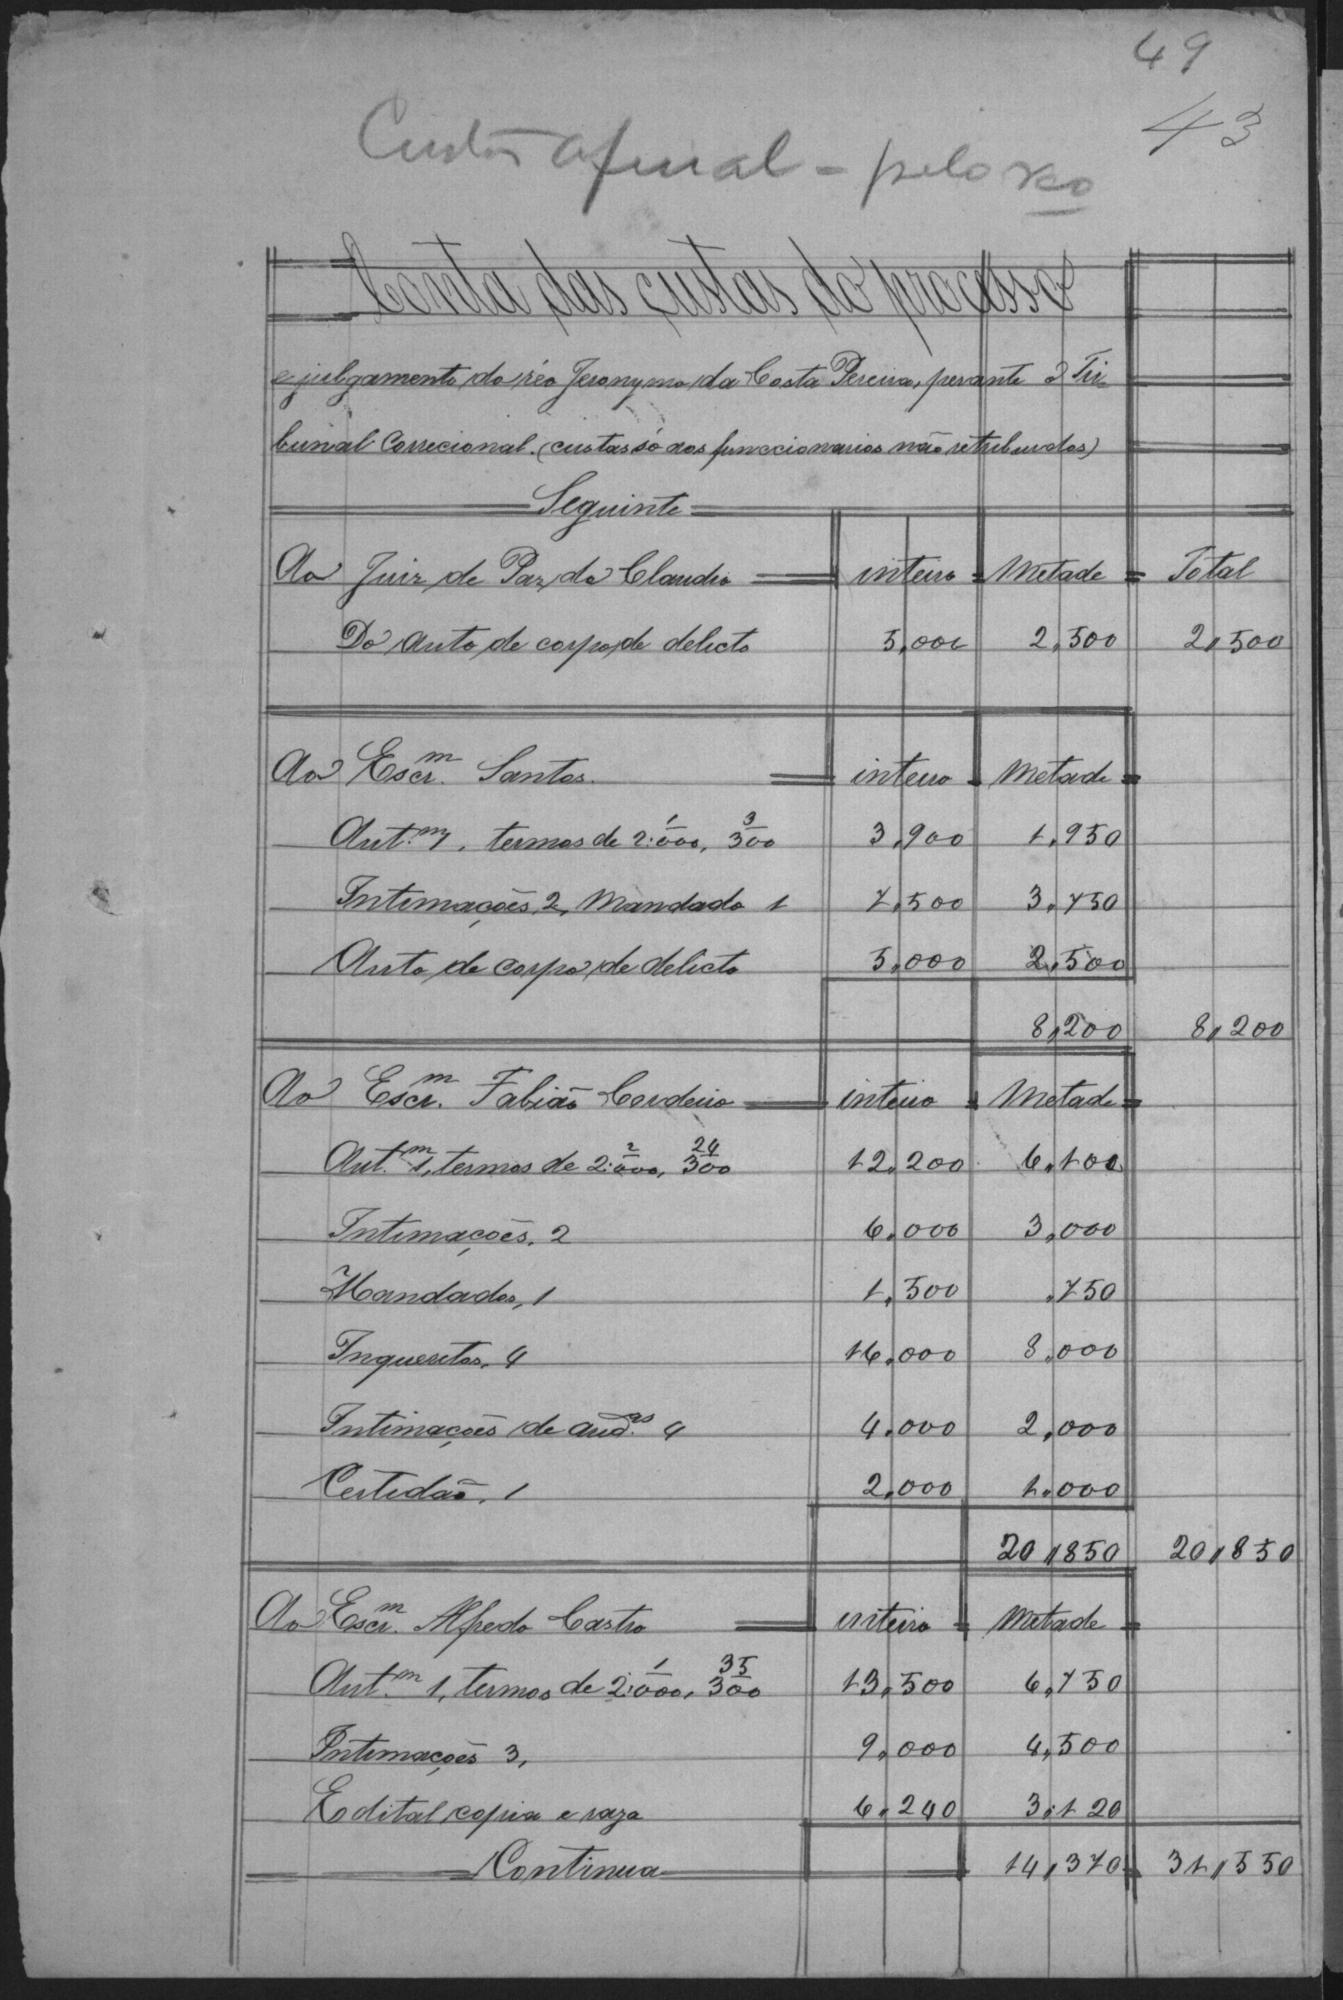 49
43
Custas afinal - pelo réo
Conta das custas do processo
e julgamento do réo Jeronymo da Costa Pereira, perante o Tri-
bunal Correcional. (custas só aos funccionarios não retribuidos)
Seguinte
Ao Juiz de Paz do Claudio = inteiro = Metade = Total
Do auto de corpo de delicto 5,000 2,500 2,500
Ao Escr.m Santos = inteiro = Metade =
Aut.m 1, termos de 1/2:000, 3/300 3,900 1,950
Intimações, 2, Mandado 1 7,500 3,750
Auto de corpo de delicto 5,000 2,500
8,200 8,200
Ao Escr.m Fabião Cordeiro = inteiro = Metade =
Aut.m 1, termos de 2/2:000, 24/300 12,200 6,100
Intimações, 2 6,000 3,000
Mandados, 1 1,500 ,750
Inqueritos, 4 16,000 8,000
Intimações de aud.as 4 4,000 2,000
Certidão, 1 2,000 1,000
20,850 20,850
Ao Escr.m Alfredo Castro = inteiro = Metade =
Aut.m 1, termos de 1/2:000, 35/300 13,500 6,750
Intimações 3, 9,000 4,500
Edital copia e raza 6,240 3,120
Continua 14,370 31,550